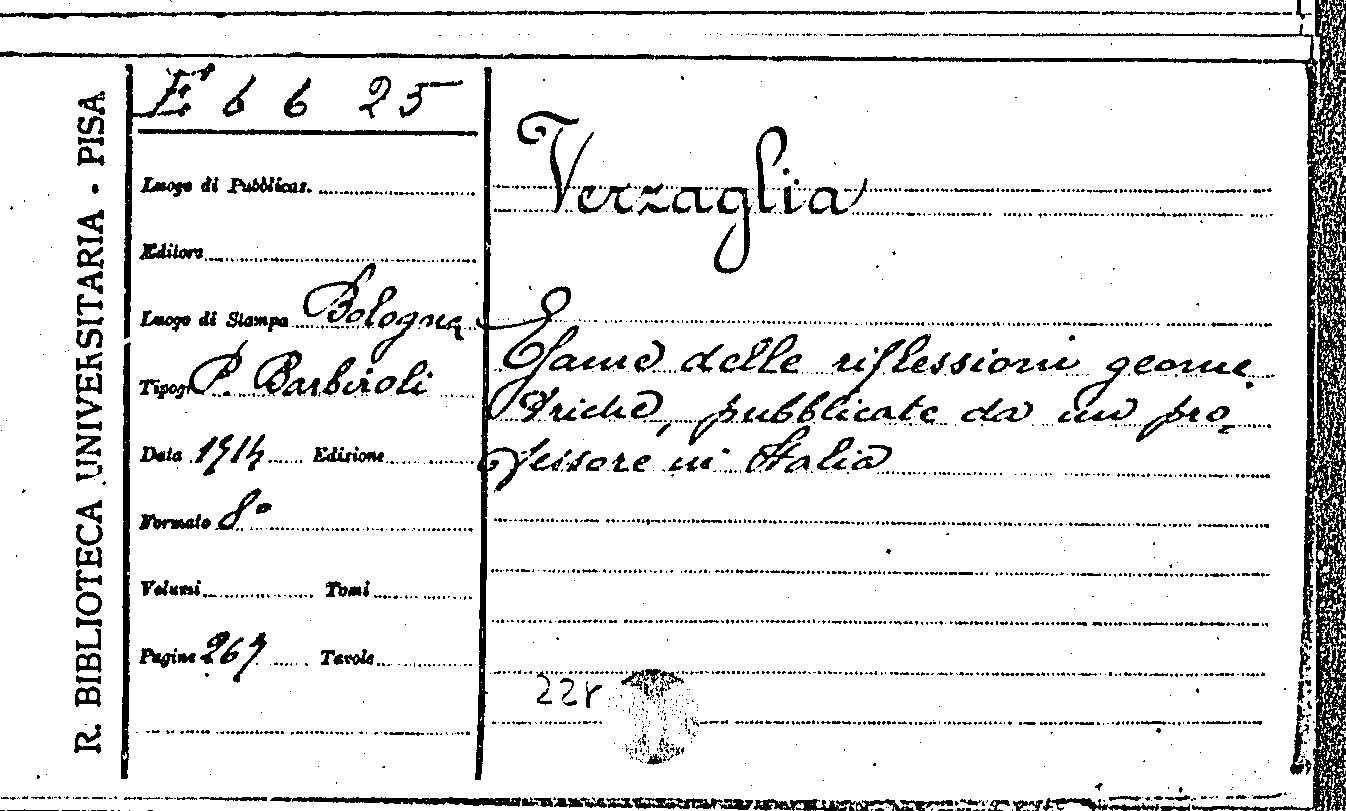 R. BIBLIOTECA UNIVERSITARIA - PISA
E 6 6 25
Luogo di Pubblicaz.
Editore
Luogo di Stampa Bologna
Tipogr. P. Barbiroli
Data 1714 Edizione
Formato 8°
Volumi Tomi
Pagine 267 Tavole
Verzaglia
Esame delle riflessioni geome
triche, pubblicate da un pro-
fessore in Italia